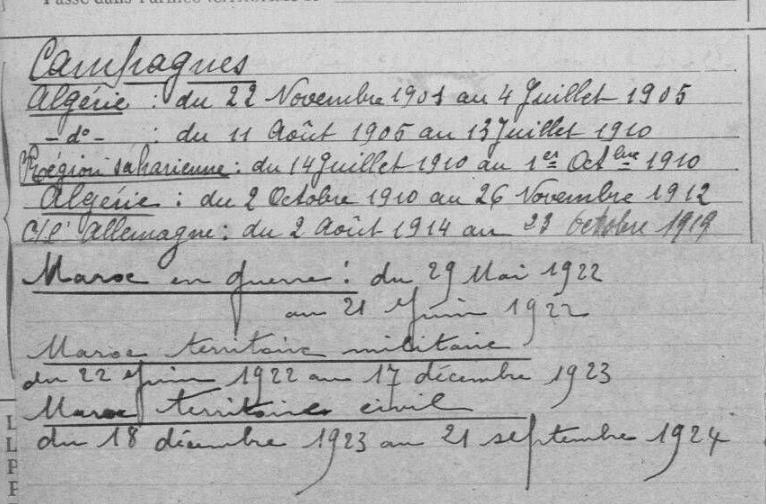 Passé dans l'armée territoriale le
Campagnes
Algérie : du 22 Novembre 1901 au 4 Juillet 1905
- do - : du 11 Août 1905 au 13 Juillet 1910
Région saharienne : du 14 Juillet 1910 au 1er Octbre 1910
Algérie : du 2 Octobre 1910 au 26 Novembre 1912
C/l' Allemagne : du 2 Août 1914 au 23 Octobre 1919
Maroc en guerre : du 29 Mai 1922
au 21 Juin 1922
Maroc territoire militaire
du 22 Juin 1922 au 17 décembre 1923
Maroc territoire civil
du 18 décembre 1923 au 21 septembre 1924
L
L
P
P